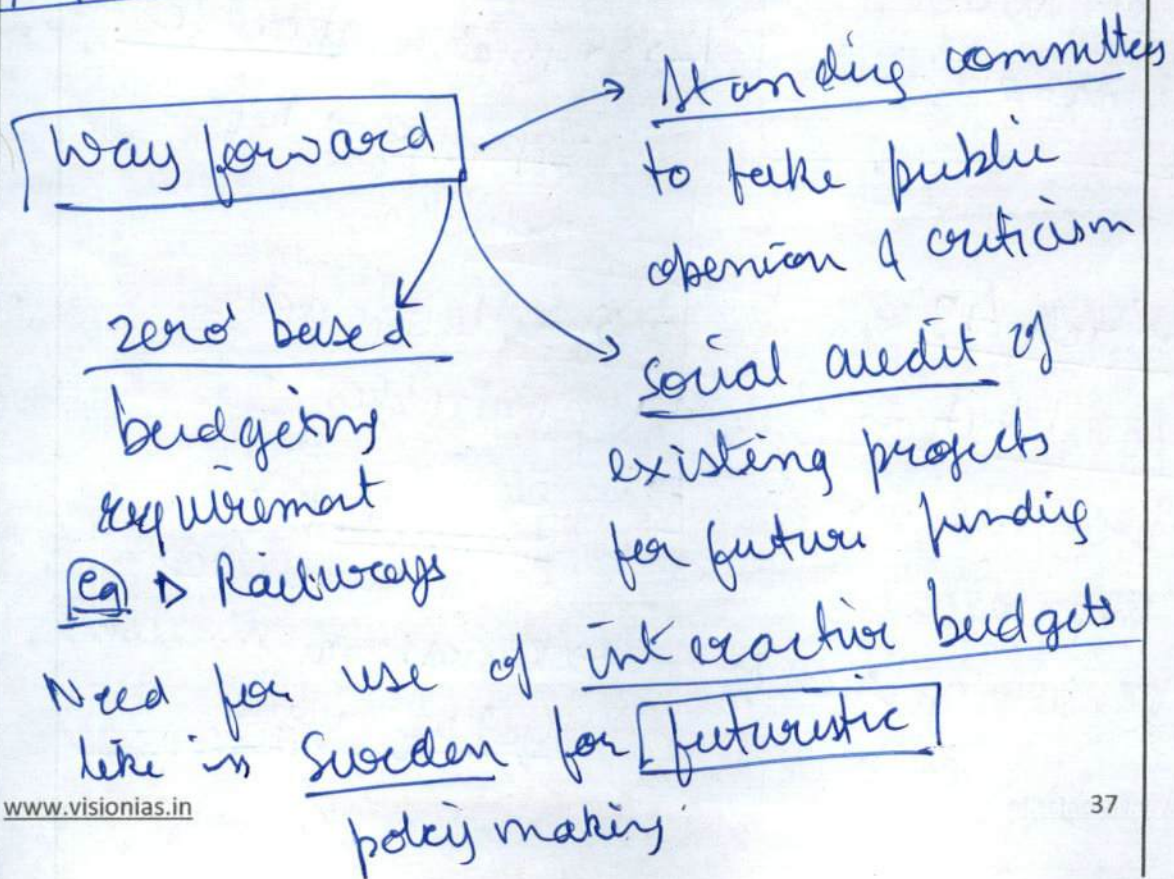 Way forward
Standing committees
to take public
openion & criticism
zero based
budgeting
requirement
eg Railways
social audit of
existing projects
for future funding
Need for use of interactive budgets
like in Sweden for futuristic
policy making
www.visionias.in
37